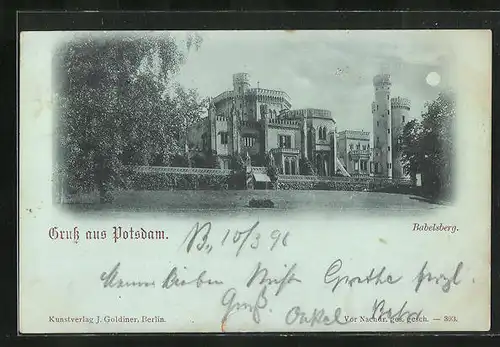 Gruß aus Potsdam.
B, 10/3 98
Babelsberg.
Meinen Lieben Nicht Grethe herzl.
Gruß Onkel
Kunstverlag J. Goldiner, Berlin.
Vor Nachdr. ges. gesch. — 893.